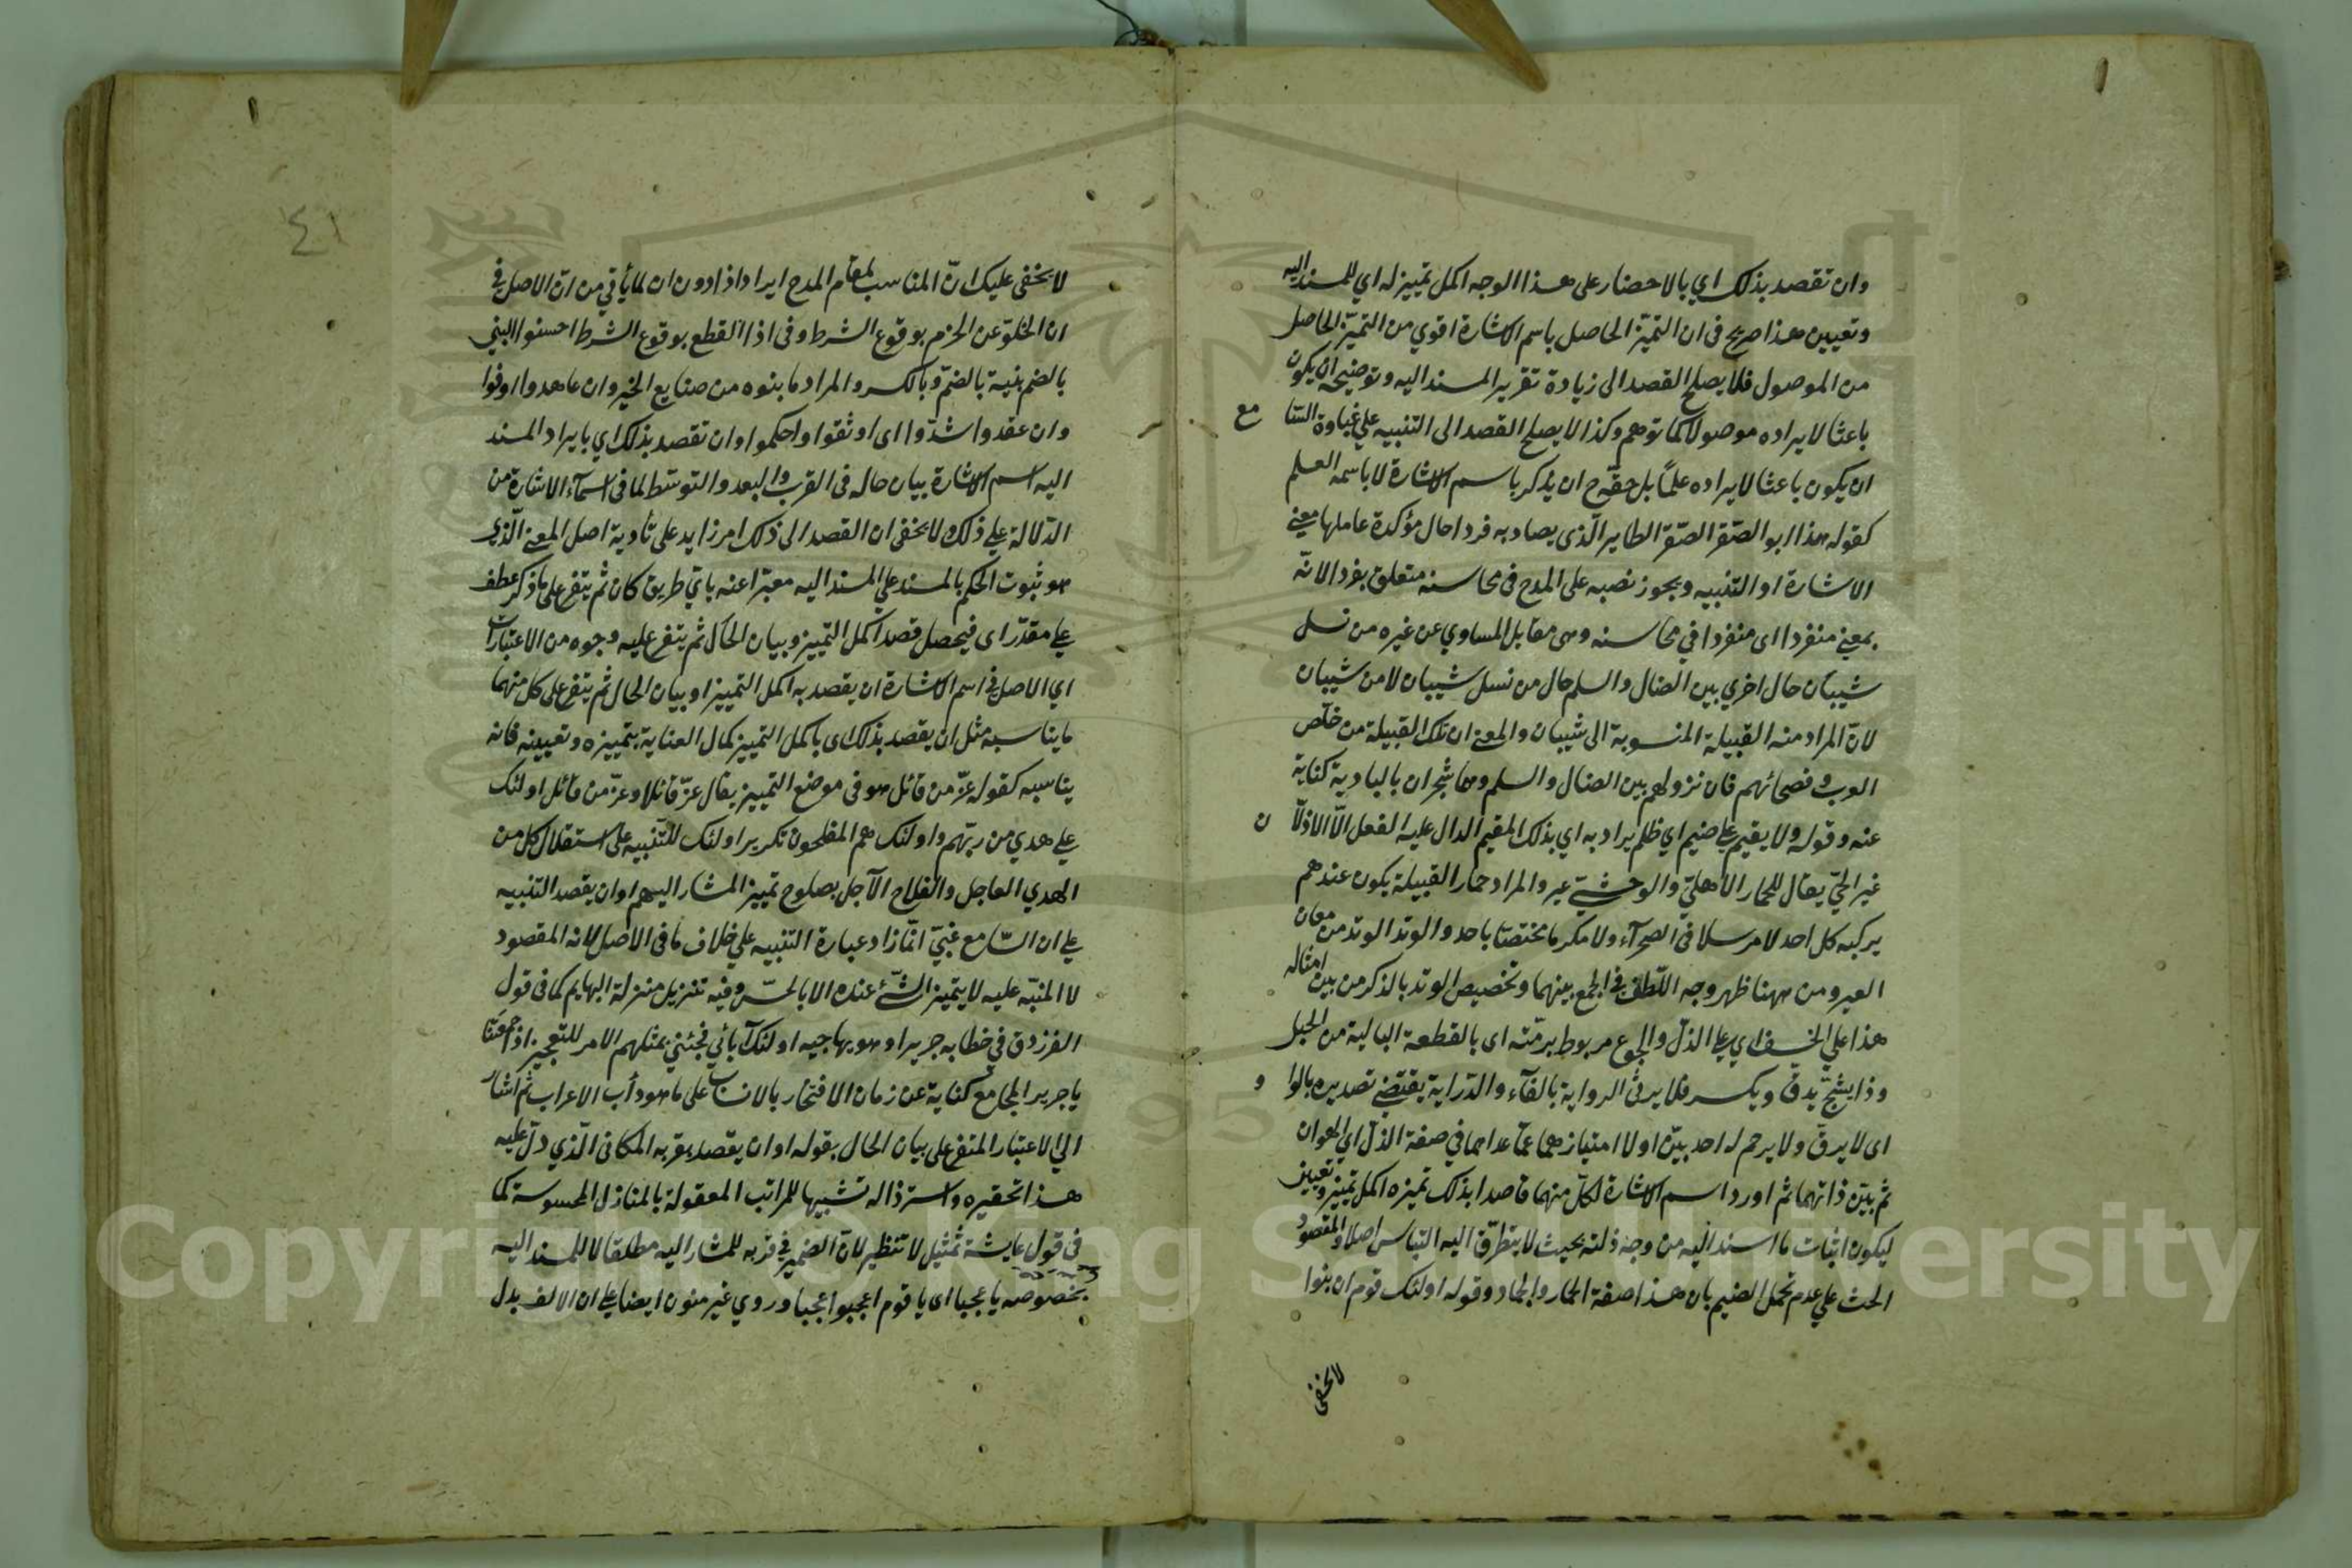 وان تقصد بذلك اي بالاحضار على هذا الوجه اكمل تمييز له اي للمسند اليه
وتعيين هذا صريح في ان التميّز الحاصل باسم الاشارة اقوي من التميّز الحاصل
من الموصول فلا يصلح القصد الى زيادة تقرير المسند اليه وتوضيحه ان يكون
باعثا لايراده موصولا كما توهم وكذا لا يصلح القصد الى التنبيه علي غباوة السّا مع
ان يكون باعثا لايراده علمًا بل حقّه ح ان يذكر باسم الاشارة لا باسمه العلم
كقوله هذا ابو الصّقر الصّقر الطاير الّذى يصاد به فردا حال مؤكدة عاملها معنى
الاشارة او التنبيه ويجوز نصبه على المدح في محاسنه متعلق بفردا لانّه
بمعنى منفردا اى منفردا في محاسنه وهى مقابل المساوي عن غيره من نسل
شيبان حال اخري بين الضال والسلم حال من نسل شيبان لا من شيبان
لانّ المراد منه القبيلة المنسوبة الى شيبان والمعنى ان تلك القبيلة من خلّص
العرب وفصحائهم فان نزولهم بين الضال والسلم وهما شجران بالبادية كناية
عنه وقوله ولا يقيم علي ضيم اي ظلم يراد به اي بذلك المقيم الدال عليه الفعل الّا الاذلّا ن
غير الحيّ يقال للحمار الاهليّ والوحشيّ عير والمراد حمار القبيلة يكون عندهم
يركبه كل احد لا مرسلا في الصحرآء ولا مكرما مختصّا باحد والوتد الوتد من معان
العير ومن ههنا ظهر وجه اللّطف في الجمع بينهما وتخصيص الوتد بالذكر من بين امثاله
هذا علي الخسف اي علي الذلّ والجوع مربوط برمّته اى بالقطعة البالية من الحبل
وذا يشجّ يدقّ ويكسر فلا يرثي الرواية بالفآء والدّراية يقتضي تصديره بالوا و
اى لا يرقّ ولا يرحم له احد بيّن اولا امتيازهما عمّا عداهما في صفة الذلّ اي الهوان
ثم بيّن ذاتهما ثم اورد اسم الاشارة لكلّ منهما قاصدا بذلك تميزه اكمل تمييز وتعيين
ليكون اثبات ما اسند اليه من وجه ذلته بحيث لا يتطرّق اليه التباس اصلا والمقصود
الحث علي عدم تحمل الضيم بان هذا صفة الحمار والجماد وقوله اولئك قوم ان بنوا
لا يخفى
٤١
لا يخفى عليك انّ المناسب لمقام المدح ايراد اذا دون ان لما يأتي من ان الاصل في
ان الخلوّ عن الجزم بوقوع الشرط وفي اذا القطع بوقوع الشرط احسنوا البنى
بالضم بنية بالضمّ وبالكسر والمراد ما بنوه من صنايع الخير وان عاهدوا اوفوا
وان عقدوا شدّوا اى اوثقوا واحكموا وان تقصد بذلك اي بايراد المسند
اليه اسم الاشارة بيان حاله في القرب والبعد والتوسّط لما في اسمآء الاشارة من
الدّلالة علي ذلك ولا يخفى ان القصد الى ذلك امر زايد على تأدية اصل المعنى الّذى
هو ثبوت الحكم بالمسند علي المسند اليه معبّرا عنه بايّ طريق كان ثم يتفرع على ما ذكر عطف
علي مقدّر اى فيحصل قصد اكمل التمييز وبيان الحال ثم يتفرع عليه وجوه من الاعتبارات
اي الاصل في اسم الاشارة ان يقصد به اكمل التمييز او بيان الحال ثم يتفرع على كل منهما
ما يناسبه مثل ان يقصد بذلك اى باكمل التمييز كمال العناية بتمييزه وتعيينه فانه
يناسبه كقوله عزّ من قائل هو في موضع التمييز يقال عزّ قائلا وعزّ من قائل اولئك
علي هدي من ربّهم واولئك هم المفلحون تكرير اولئك للتّنبيه على استقلال كل من
الهدي العاجل والفلاح الآجل بصلوح تمييز المشار اليهم او ان يقصد التنبيه
علي ان السّامع غبيّ انّما زاد عبارة التنبيه علي خلاف ما في الاصل لانه المقصود
لا المنبّه عليه لا يتميز الشّئ عنده الا بالحسّ وفيه تنزيل منزلة البهايم كما في قول
الفرزدق في خطابه جريرا وهو يهاجيه اولئك آبائي فجئني بمثلهم الامر للتعجيز اذا جمعتنا
يا جرير المجامع كناية عن زمان الافتخار بالانساب على ما هو دأب الاعراب ثم اشار
الي الاعتبار المتفرع على بيان الحال بقوله او ان يقصد بقربه المكانى الّذي دلّ عليه
هذا تحقيره واسترذاله تشبيها للمراتب المعقولة بالمنازل المحسوسة كما
في قول عايشة تمثيل لا تنظير لانّ الضمير في قربه للمشار اليه مطلقا لا للمسند اليه
بخصوصه يا عجبا اى يا قوم اعجبوا عجبا وروي غير منون ايضا علي ان الالف بدل
Copyright © King Saud University